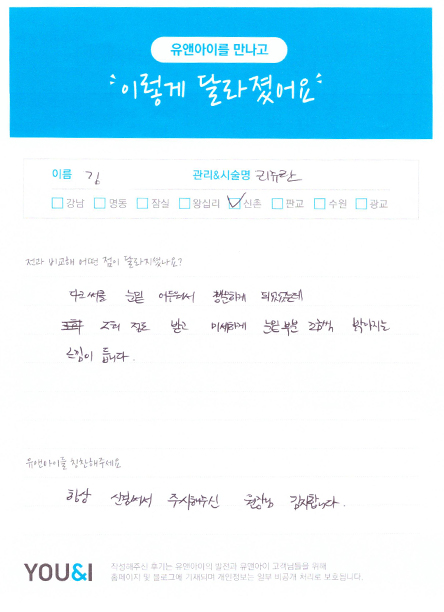 유앤아이를 만나고
이렇게 달라졌어요
이름 김 관리&시술명 리쥬란
강남 명동 잠실 왕십리 신촌 판교 수원 광교
전과 비교해 어떤 점이 달라지셨나요?
눈밑 어두워서 하게 되었는데
2회 정도 받고 미세하게 눈밑 부분 조금씩 밝아지는
느낌이 듭니다.
유앤아이를 칭찬해주세요
항상 신경써서 주사해주신 원장님 감사합니다.
YOU&I
작성해주신 후기는 유앤아이의 발전과 유앤아이 고객님들을 위해
홈페이지 및 블로그에 기재되며 개인정보는 일부 비공개 처리로 보호됩니다.